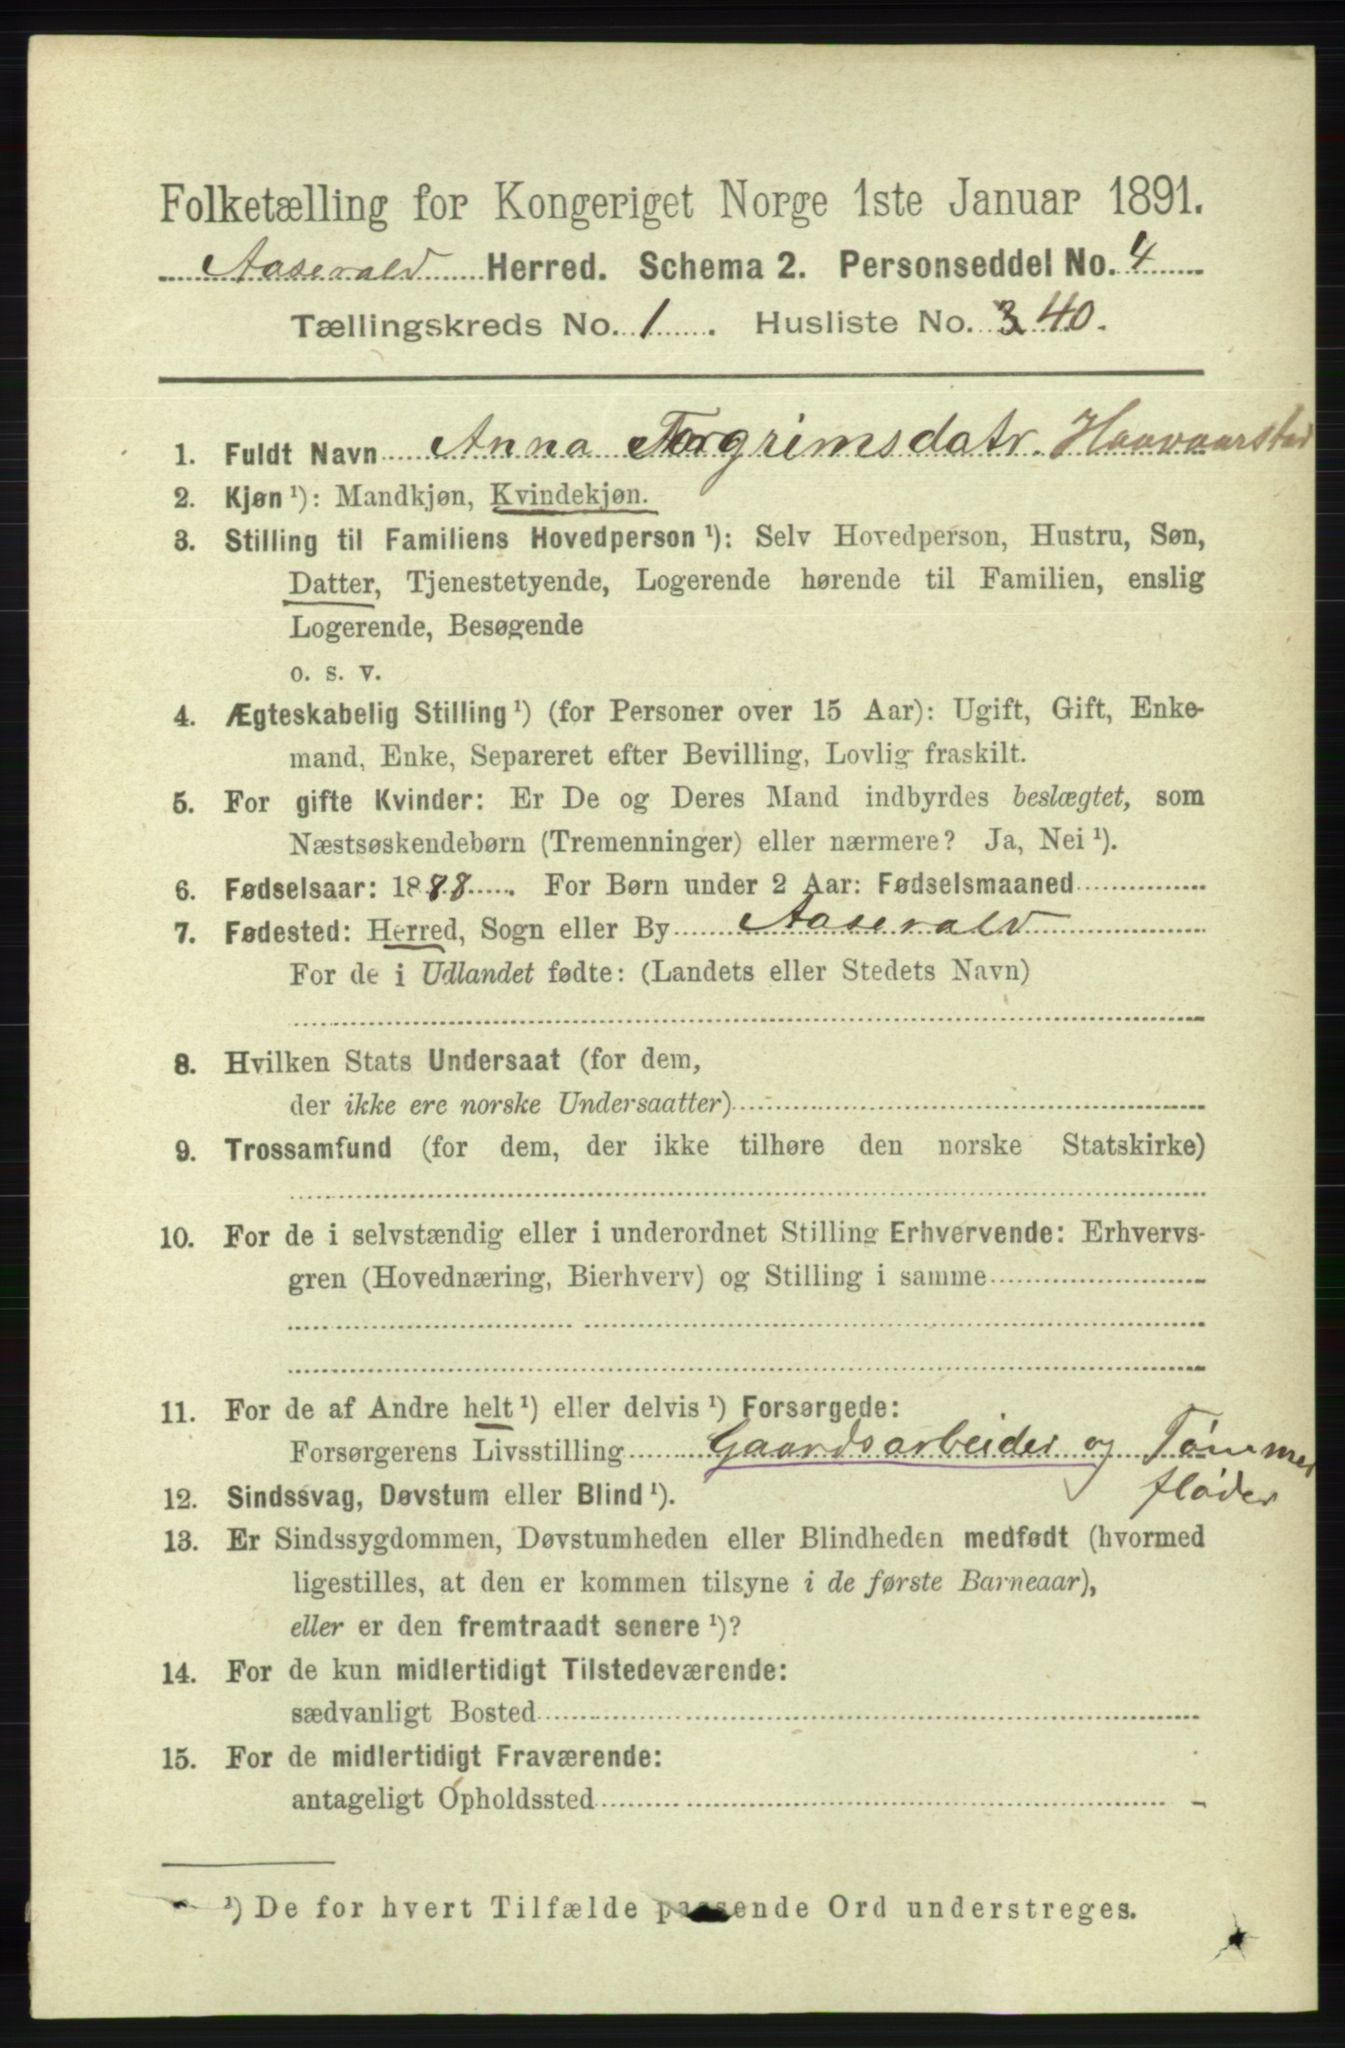 Folketælling for Kongeriget Norge 1ste Januar 1891.
Aaserald Herred. Schema 2. Personseddel No. 4
Tællingskreds No. 1. Husliste No. 3 40.
1. Fuldt Navn Anna Torgrimsdatr. Haavaarstad
2. Kjøn ¹): Mandkjøn, Kvindekjøn.
3. Stilling til Familiens Hovedperson ¹): Selv Hovedperson, Hustru, Søn,
Datter, Tjenestetyende, Logerende hørende til Familien, enslig
Logerende, Besøgende
o. s. v.
4. Ægteskabelig Stilling ¹) (for Personer over 15 Aar): Ugift, Gift, Enke-
mand, Enke, Separeret efter Bevilling, Lovlig fraskilt.
5. For gifte Kvinder: Er De og Deres Mand indbyrdes beslægtet, som
Næstsøskendebørn (Tremenninger) eller nærmere? Ja, Nei ¹).
6. Fødselsaar: 1888. For Børn under 2 Aar: Fødselsmaaned
7. Fødested: Herred, Sogn eller By Aaserald
For de i Udlandet fødte: (Landets eller Stedets Navn)
8. Hvilken Stats Undersaat (for dem,
der ikke ere norske Undersaatter)
9. Trossamfund (for dem, der ikke tilhøre den norske Statskirke)
10. For de i selvstændig eller i underordnet Stilling Erhvervende: Erhvervs-
gren (Hovednæring, Bierhverv) og Stilling i samme
11. For de af Andre helt ¹) eller delvis ¹) Forsørgede:
Forsørgerens Livsstilling Gaardsarbeider og Tømmer
fløder
12. Sindssvag, Døvstum eller Blind ¹).
13. Er Sindssygdommen, Døvstumheden eller Blindheden medfødt (hvormed
ligestilles, at den er kommen tilsyne i de første Barneaar),
eller er den fremtraadt senere ¹)?
14. For de kun midlertidigt Tilstedeværende:
sædvanligt Bosted
15. For de midlertidigt Fraværende:
antageligt Opholdssted
¹) De for hvert Tilfælde passende Ord understreges.